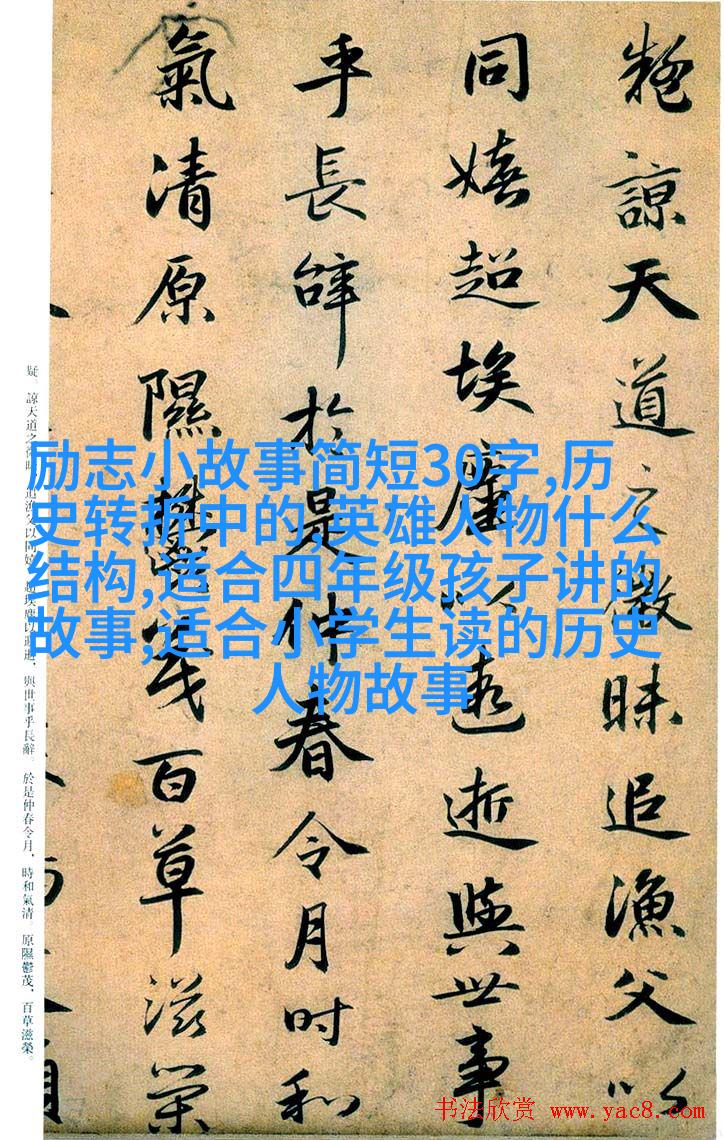 疑諒天道之微昧追漁父以
同嬉超埃塵以遐逝與世事
乎長辭於是仲春令月時和
氣清原隰鬱茂百草滋榮
疑。諒天道之微昧，追漁父以同嬉。超埃塵以遐逝，與世事乎長辭。於是仲春令月，時和氣清。原隰鬱茂，百草滋榮。
励志小故事简短30字,历
史转折中的,英雄人物什么
结构,适合四年级孩子讲的
故事,适合小学生读的历史
人物故事
书法欣赏 www.yac8.com